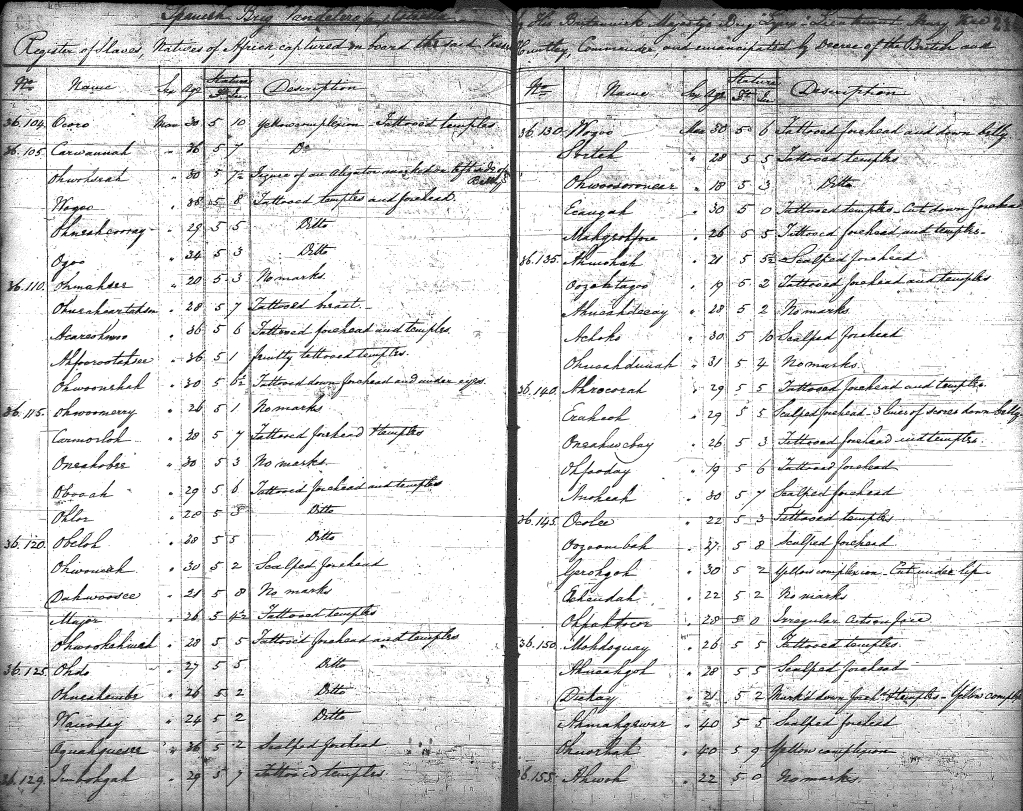 Spanish Brig
Register of Slaves, Natives of Africa captured on board the said Vessel
No. Name Sex Age Stature Ft. In. Description
36.104. Ocoro Man 30 5 10 Yellow complexion - Tattooed temples
36.105. Carwannah " 36 5 7 Do
Ohwohsrah " 30 5 7½ Figure of an Aligator marked on left side of Belly
Wogoo " 36 5 8 Tattooed temples and forehead.
" 29 5 5 Ditto
Ogoo " 34 5 3 Ditto
36.110. Ohmahder " 20 5 3 No marks
" 28 5 7 Tattooed breast
" 36 5 6 Tattooed forehead and temples
Ahfoorootahsee " 36 5 1 faintly tattooed temples.
Ohwoonehah " 30 5 6½ Tattooed down forehead and under eyes.
36.115. Ohwoomerry " 26 5 1 No marks
Carmorloh " 28 5 7 Tattooed forehead & temples
Oneahobee " 30 5 3 No marks
Obooah " 29 5 6 Tattooed forehead and temples
Ohlor " 20 5 3 Ditto
36.120. Obeloh " 28 5 5 Ditto
Ohwoneah " 30 5 2 Scalped forehead
Duhwoosee " 21 5 8 No marks
Major " 26 5 4½ Tattooed temples
" 28 5 5 Tattooed forehead and temples
36.125. Ohdo " 27 5 5 Ditto
" 26 5 2 Ditto
" 24 5 2 Ditto
" 36 5 2 Scalped forehead
36.129. " 29 5 7 Tattooed temples
His Britannick Majesty's Brig Lieutenant Henry
Huntley, Commander, and emancipated by Decree of the British and
No. Name Sex Age Stature Ft. In. Description
36.130. Wogoo Man 30 5 6 Tattooed forehead and down belly
" 28 5 5 Tattooed temples
Ohwoosoronear " 18 5 3 Ditto
Ecaugah " 30 5 0 Tattooed temples - Cut down forehead
Mahgrohfore " 26 5 5 Tattooed forehead and temples.
36.135. Ahmohah " 21 5 5½ Scalped forehead
Oozahtagoo " 19 5 2 Tattooed forehead and temples
Ahneahdecay " 28 5 2 No marks
Achoko " 30 5 10 Scalped forehead
" 31 5 4 No marks.
36.140. Ahrocorah " 29 5 5 Tattooed forehead and temples.
Eraheoh " 29 5 5 Scalped forehead - 3 lines of scores down belly
Oneahwchay " 26 5 3 Tattooed forehead and temples.
Ohfooday " 19 5 6 Tattooed forehead
Anoheah " 30 5 7 Scalped forehead
36.145. Ocolee " 22 5 3 Tattooed temples
Oozoombah " 27 5 8 Scalped forehead
Gerohgoh " 30 5 2 Yellow complexion - Cut under lip.
Echendah " 22 5 2 No marks
Ohpahtocor " 28 5 0 Irregular cuts on face
36.150. Mohdoguay " 26 5 5 Tattooed temples.
Ahneahgoh " 28 5 5 Scalped forehead
" 21 5 2 Mark'd down foreh'd & temples - Yellow complex
Ahmahgewar " 40 5 5 Scalped forehead
" 40 5 9 Yellow complexion
36.155. Ahwoh " 22 5 0 No marks.